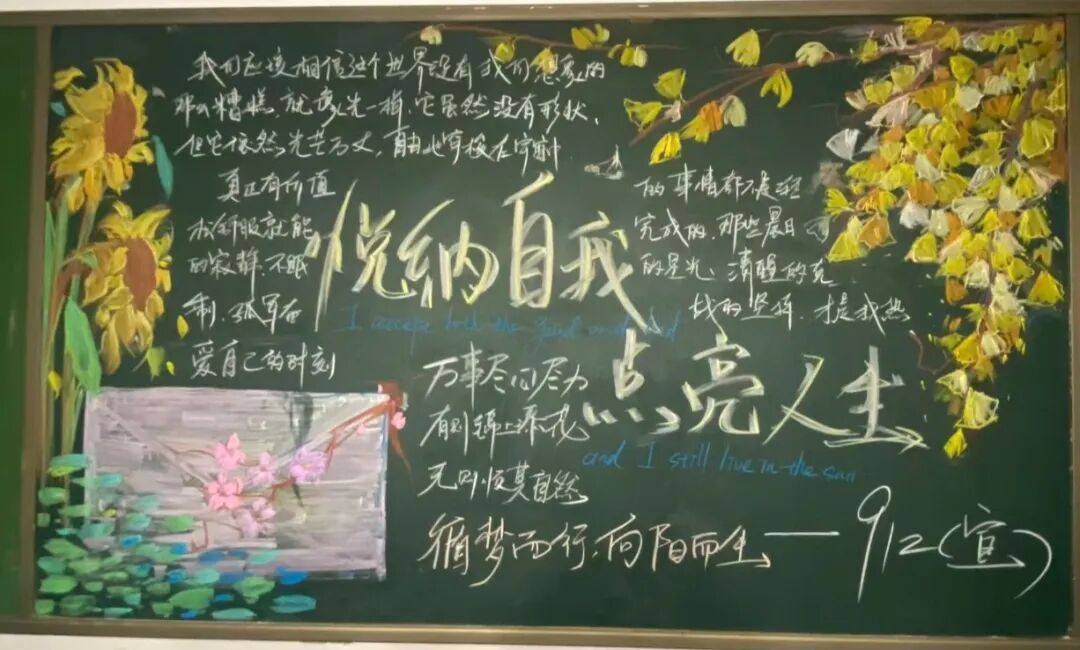 我们应该相信这个世界没有我们想象的
那么糟糕,就像光一样,它虽然没有形状,
但它依然光芒万丈,自由地穿梭在宇宙中
真正有价值
的事情都不是轻
松舒服就能
完成的,那些晨日
的寂静,不眠
的星光,清醒的克
制,孤军奋
战的坚持,才是我热
爱自己的时刻
悦纳自我
I accept both the good and bad
点亮人生
and I still live in the sun
万事尽心尽力
有则锦上添花
无则顺其自然
循梦而行,向阳而生——912(宣)